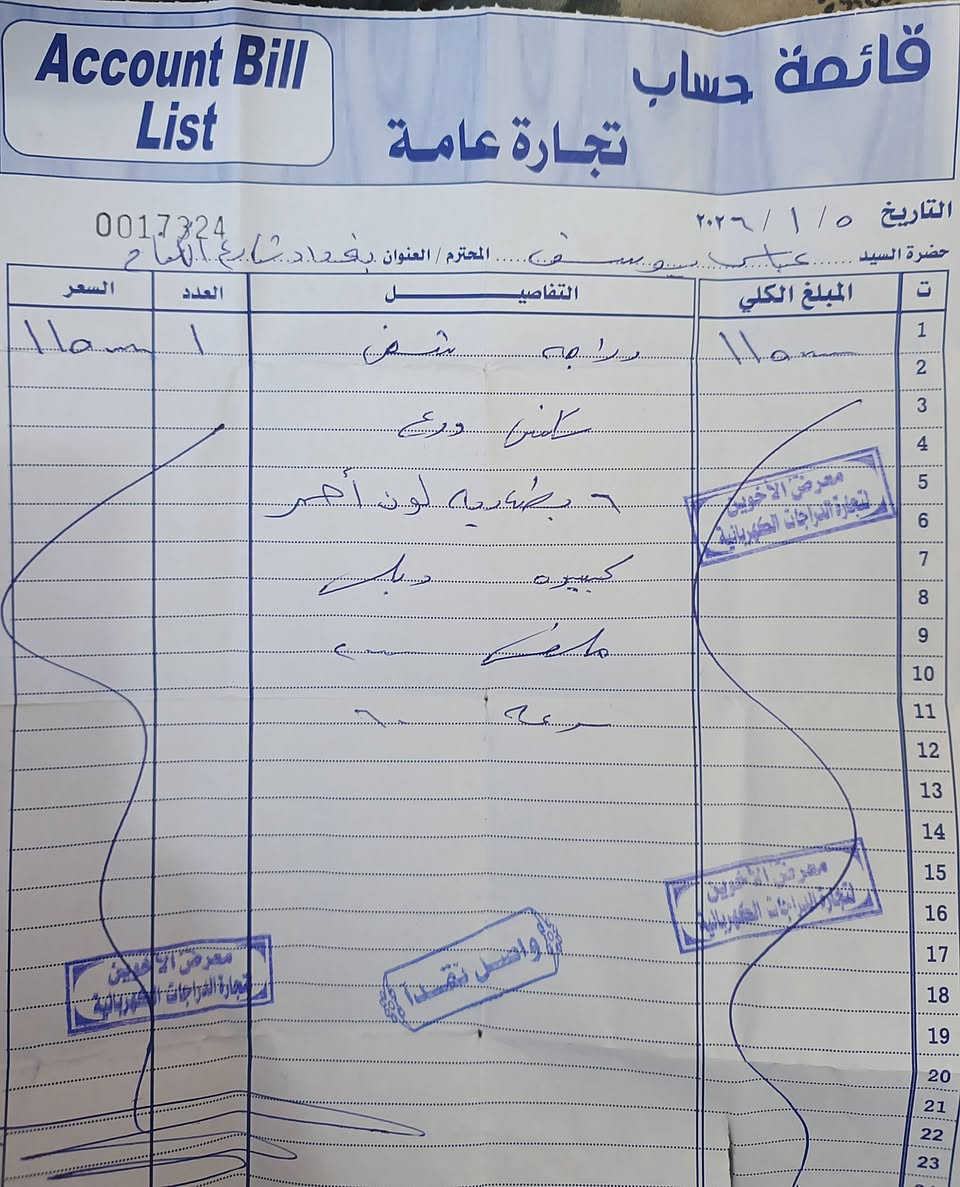 Account Bill List
قائمة حساب
تجارة عامة
0017324
التاريخ ٥ / ١ / ٢٠٢٦
حضرة السيد عباس يوسف المحترم / العنوان بغداد شارع الكفاح
ت المبلغ الكلي التفاصيل العدد السعر
1 دراجه شحن ١
2
3
4
5
٦ بطاريه لون أحمر
6
7
كبيره دبل
8
9
10
11
سرعه ٦٠
12
13
14
15
16
17
18
19
20
21
22
23
معرض الأخوين
لتجارة الدراجات الكهربائية
معرض الأخوين
لتجارة الدراجات الكهربائية
معرض الأخوين
لتجارة الدراجات الكهربائية
واصل نقداً